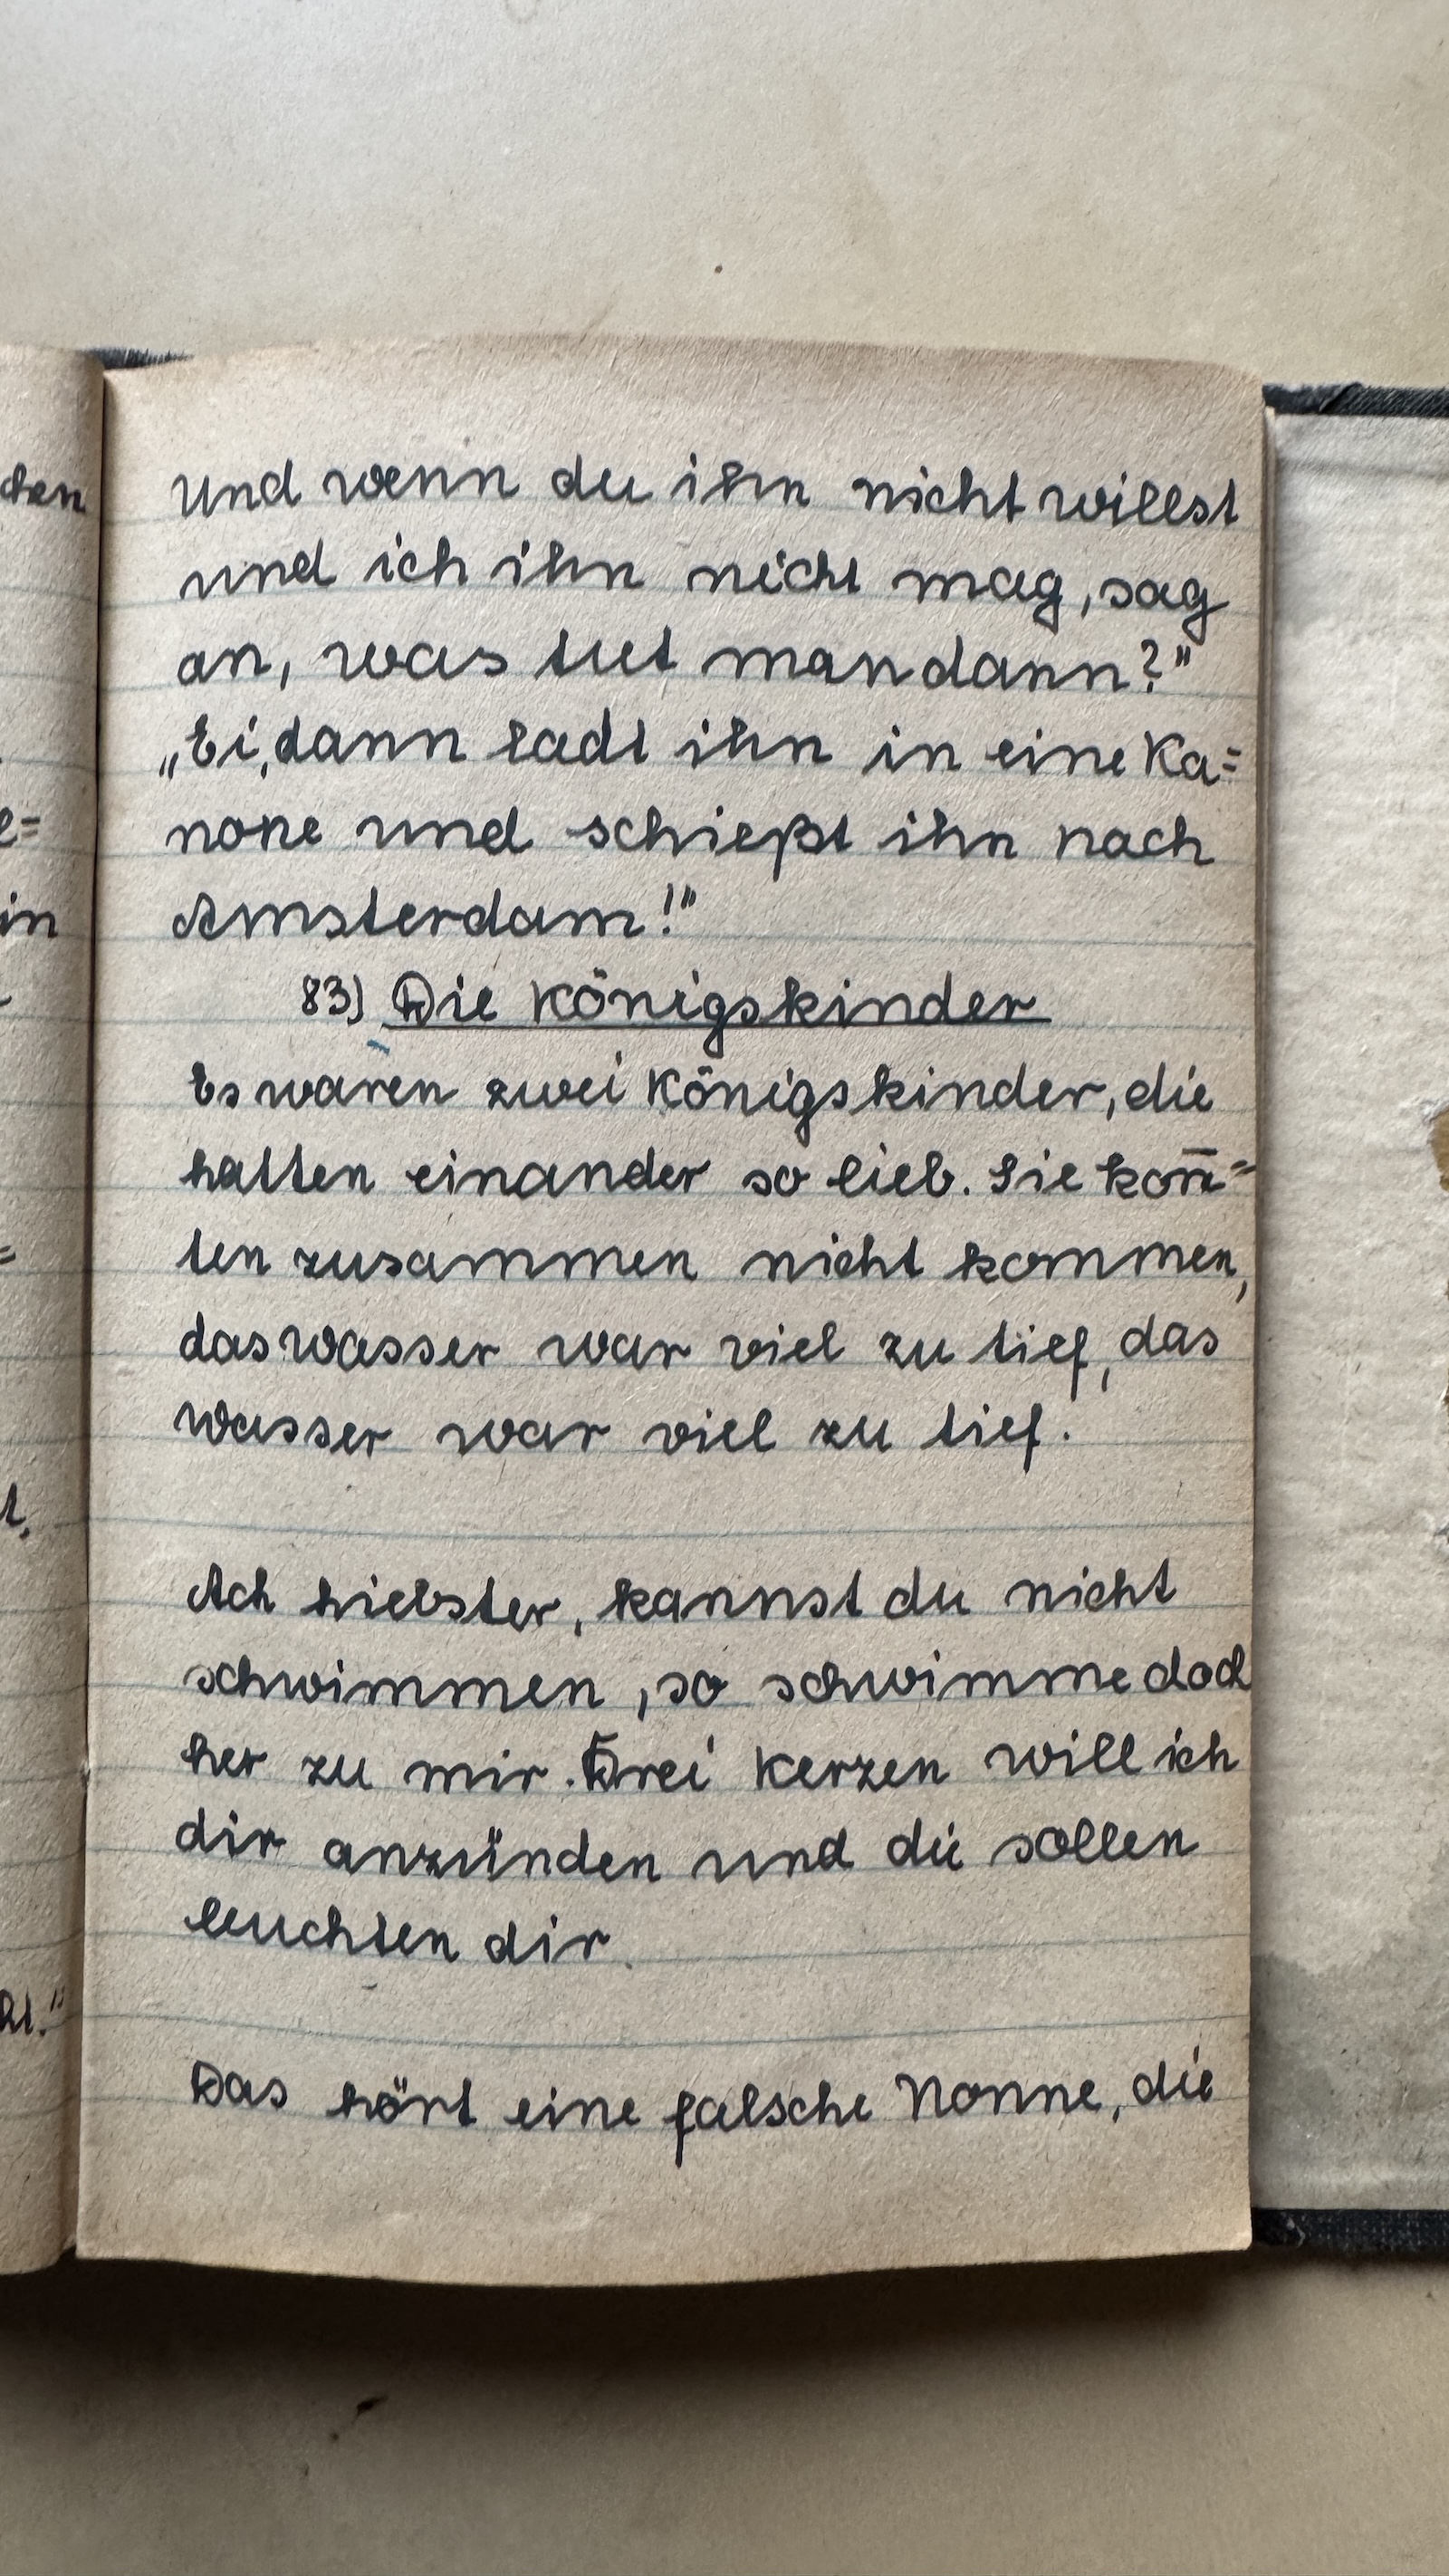 und wenn du ihn nicht willst
und ich ihn nicht mag, sag
an, was tut man dann?"
„Ei, dann ladt ihn in eine Ka=
none und schießt ihn nach
Amsterdam!"
83) Die Königskinder
Es waren zwei Königskinder, die
hatten einander so lieb. Sie kon̄=
ten zusammen nicht kommen,
das Wasser war viel zu tief, das
Wasser war viel zu tief.
Ach Liebster, kannst du nicht
schwimmen, so schwimme doch
her zu mir. Drei Kerzen will ich
dir anzünden und die sollen
leuchten dir.
Das hört eine falsche Nonne, die